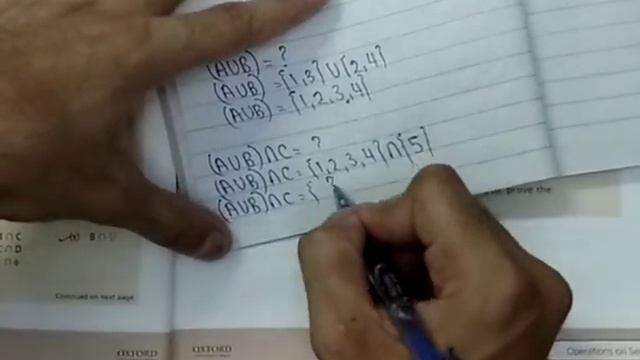 (AUB) = ?
(AUB) = {1,3} U {2,4}
(AUB) = {1,2,3,4}
(AUB)∩C = ?
(AUB)∩C = {1,2,3,4} ∩ {5}
(AUB)∩C = {
prove the
∩ C
(x) B ∩
Continued on next page
OXFORD
OXFORD
Operations on Se